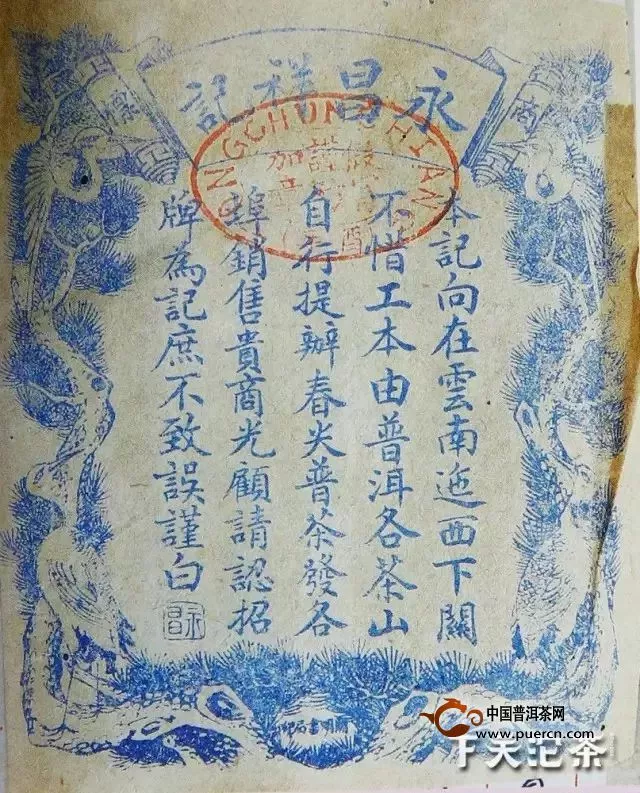 商標
永昌祥記
本記向在雲南迤西下關
不惜工本由普洱各茶山
自行提辦春尖普茶發各
埠銷售貴商光顧請認招
牌為記庶不致誤謹白
永昌
中国普洱茶网
www.puercn.com
下关沱茶